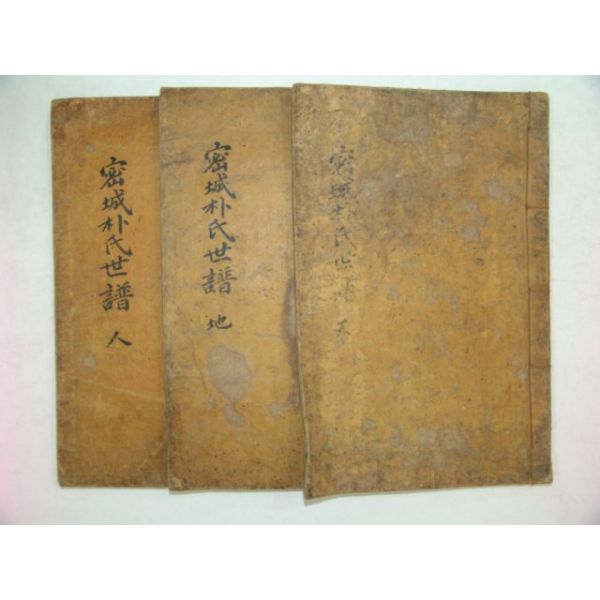 密城朴氏世譜 天
密城朴氏世譜 地
密城朴氏世譜 人